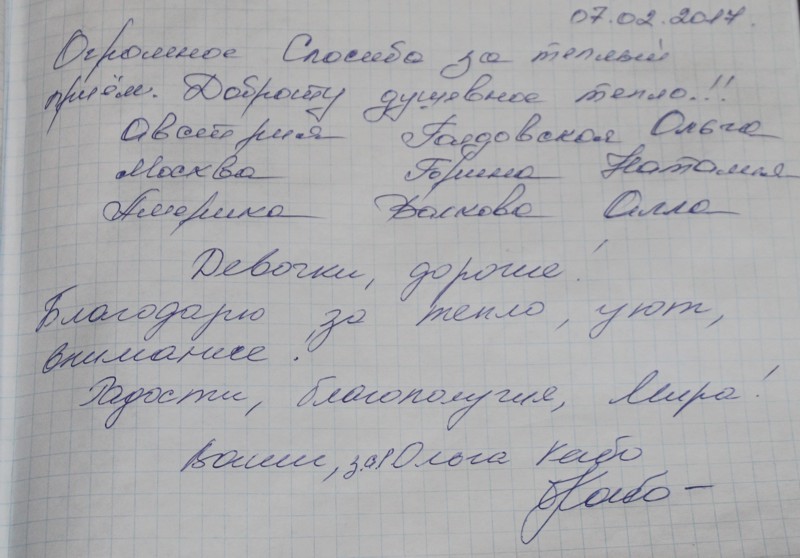 07.02.2017.
Огромное Спасибо за теплый
приём. Доброту душевное тепло!!!
Австрия Гаедовская Ольга
Москва Горина Наталия
Америка Алла
Девочки, дорогие!
Благодарю за тепло, уют,
внимание!
Радости, благополучия, Мира!
Ваши, з.а Ольга Кабо
Кабо